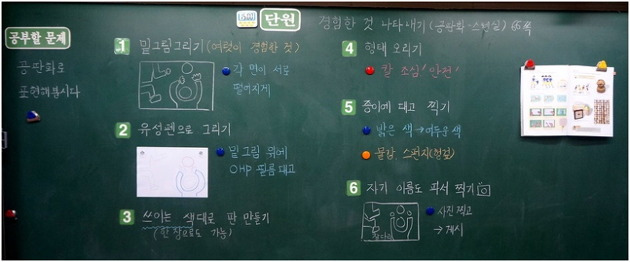 단원 경험한 것 나타내기(공판화-스텐실)
공부할 문제
공판화로
표현해봅시다
1 밑그림그리기(여럿이 경험한 것)
각 면이 서로
떨어지게
2 유성펜으로 그리기
밑그림 위에
OHP 필름 대고
3 쓰이는 색대로 판 만들기
(한장으로도 가능)
4 형태 오리기
칼 조심! 안전!
5 종이에 대고 찍기
밝은 색→어두운 색
물감 스펀지(헝겊)
6 자기 이름도 파서 찍기
사진 찍고
→ 게시